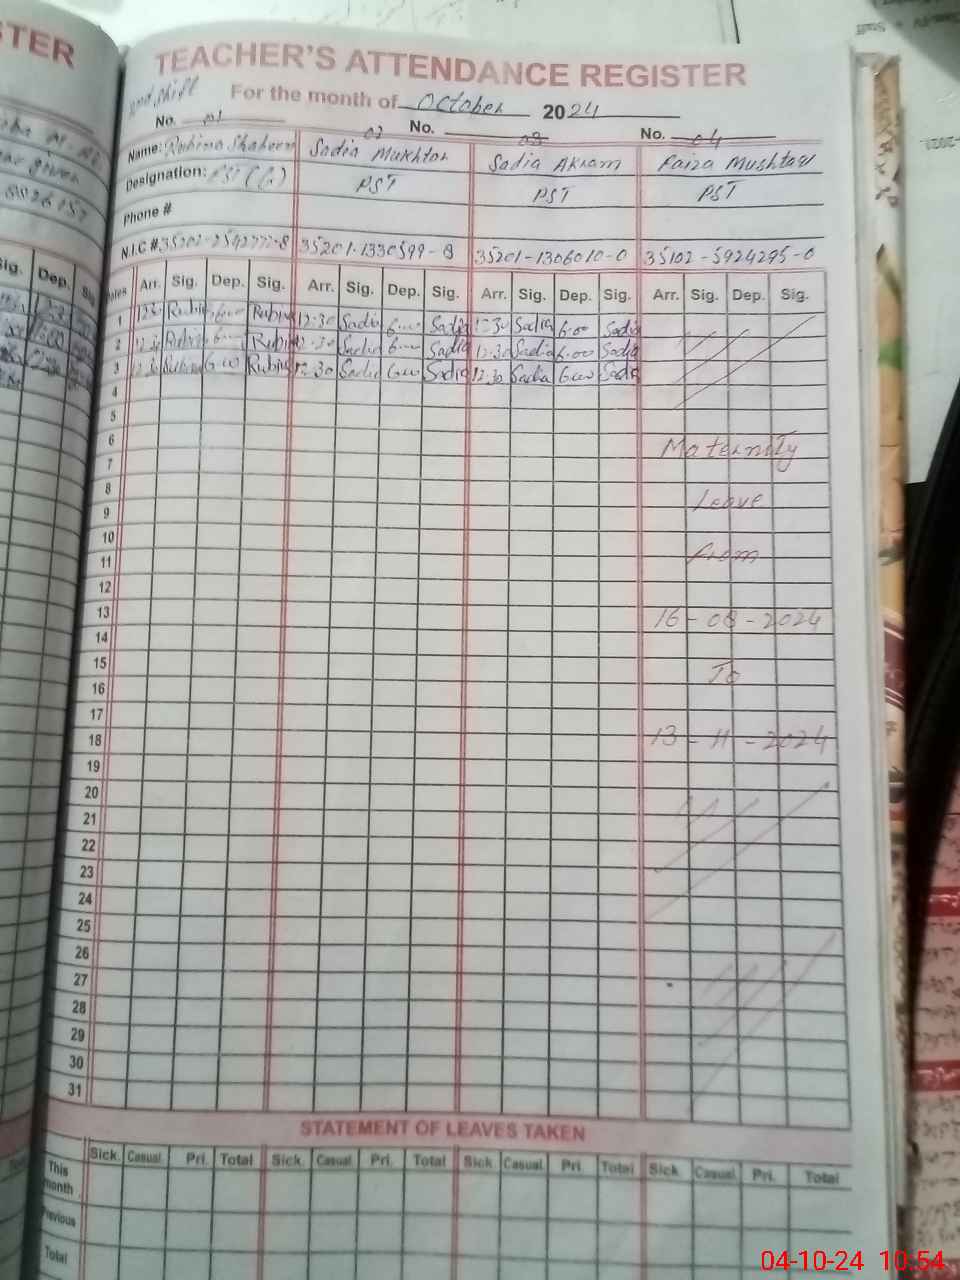 STER
TEACHER'S ATTENDANCE REGISTER
2nd shift
For the month of October 2024
No. 01 02 No. 03 No. 04
Name: Rubina Shaheen Sadia Mukhtar Sadia Akram Faiza Mushtaq
Designation: PST (G) PST PST PST
Phone #
N.I.C # 35202-2542772-8 35201-1330599-8 35201-1306010-0 35102-5924295-0
Dates Arr. Sig. Dep. Sig. Arr. Sig. Dep. Sig. Arr. Sig. Dep. Sig. Arr. Sig. Dep. Sig.
1 12:30 Rubina 6:00 Rubina 12:30 Sadia 6:00 Sadia 12:30 Sadia 6:00 Sadia
2 12:30 Rubina 6:00 Rubina 12:30 Sadia 6:00 Sadia 12:30 Sadia 6:00 Sadia
3 12:30 Rubina 6:00 Rubina 12:30 Sadia 6:00 Sadia 12:30 Sadia 6:00 Sadia
4
5
6 Maternity
7
8 Leave
9
10 From
11
12
13 16-08-2024
14
15 To
16
17
18 13-11-2024
19
20
21
22
23
24
25
26
27
28
29
30
31
STATEMENT OF LEAVES TAKEN
Sick. Casual. Pri. Total Sick. Casual. Pri. Total Sick. Casual. Pri. Total Sick. Casual. Pri. Total
This month
Previous
Total
04-10-24 10:54